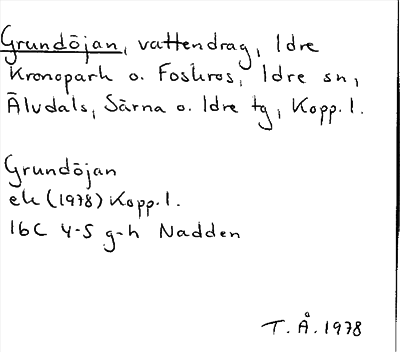 Grundöjan, vattendrag, Idre
Kronopark o. Foskros, Idre sn,
Älvdals, Särna o. Idre tg, Kopp. l.
Grundöjan
ek (1978) Kopp. l.
16C 4-5 g-h Nadden
T. Å. 1978